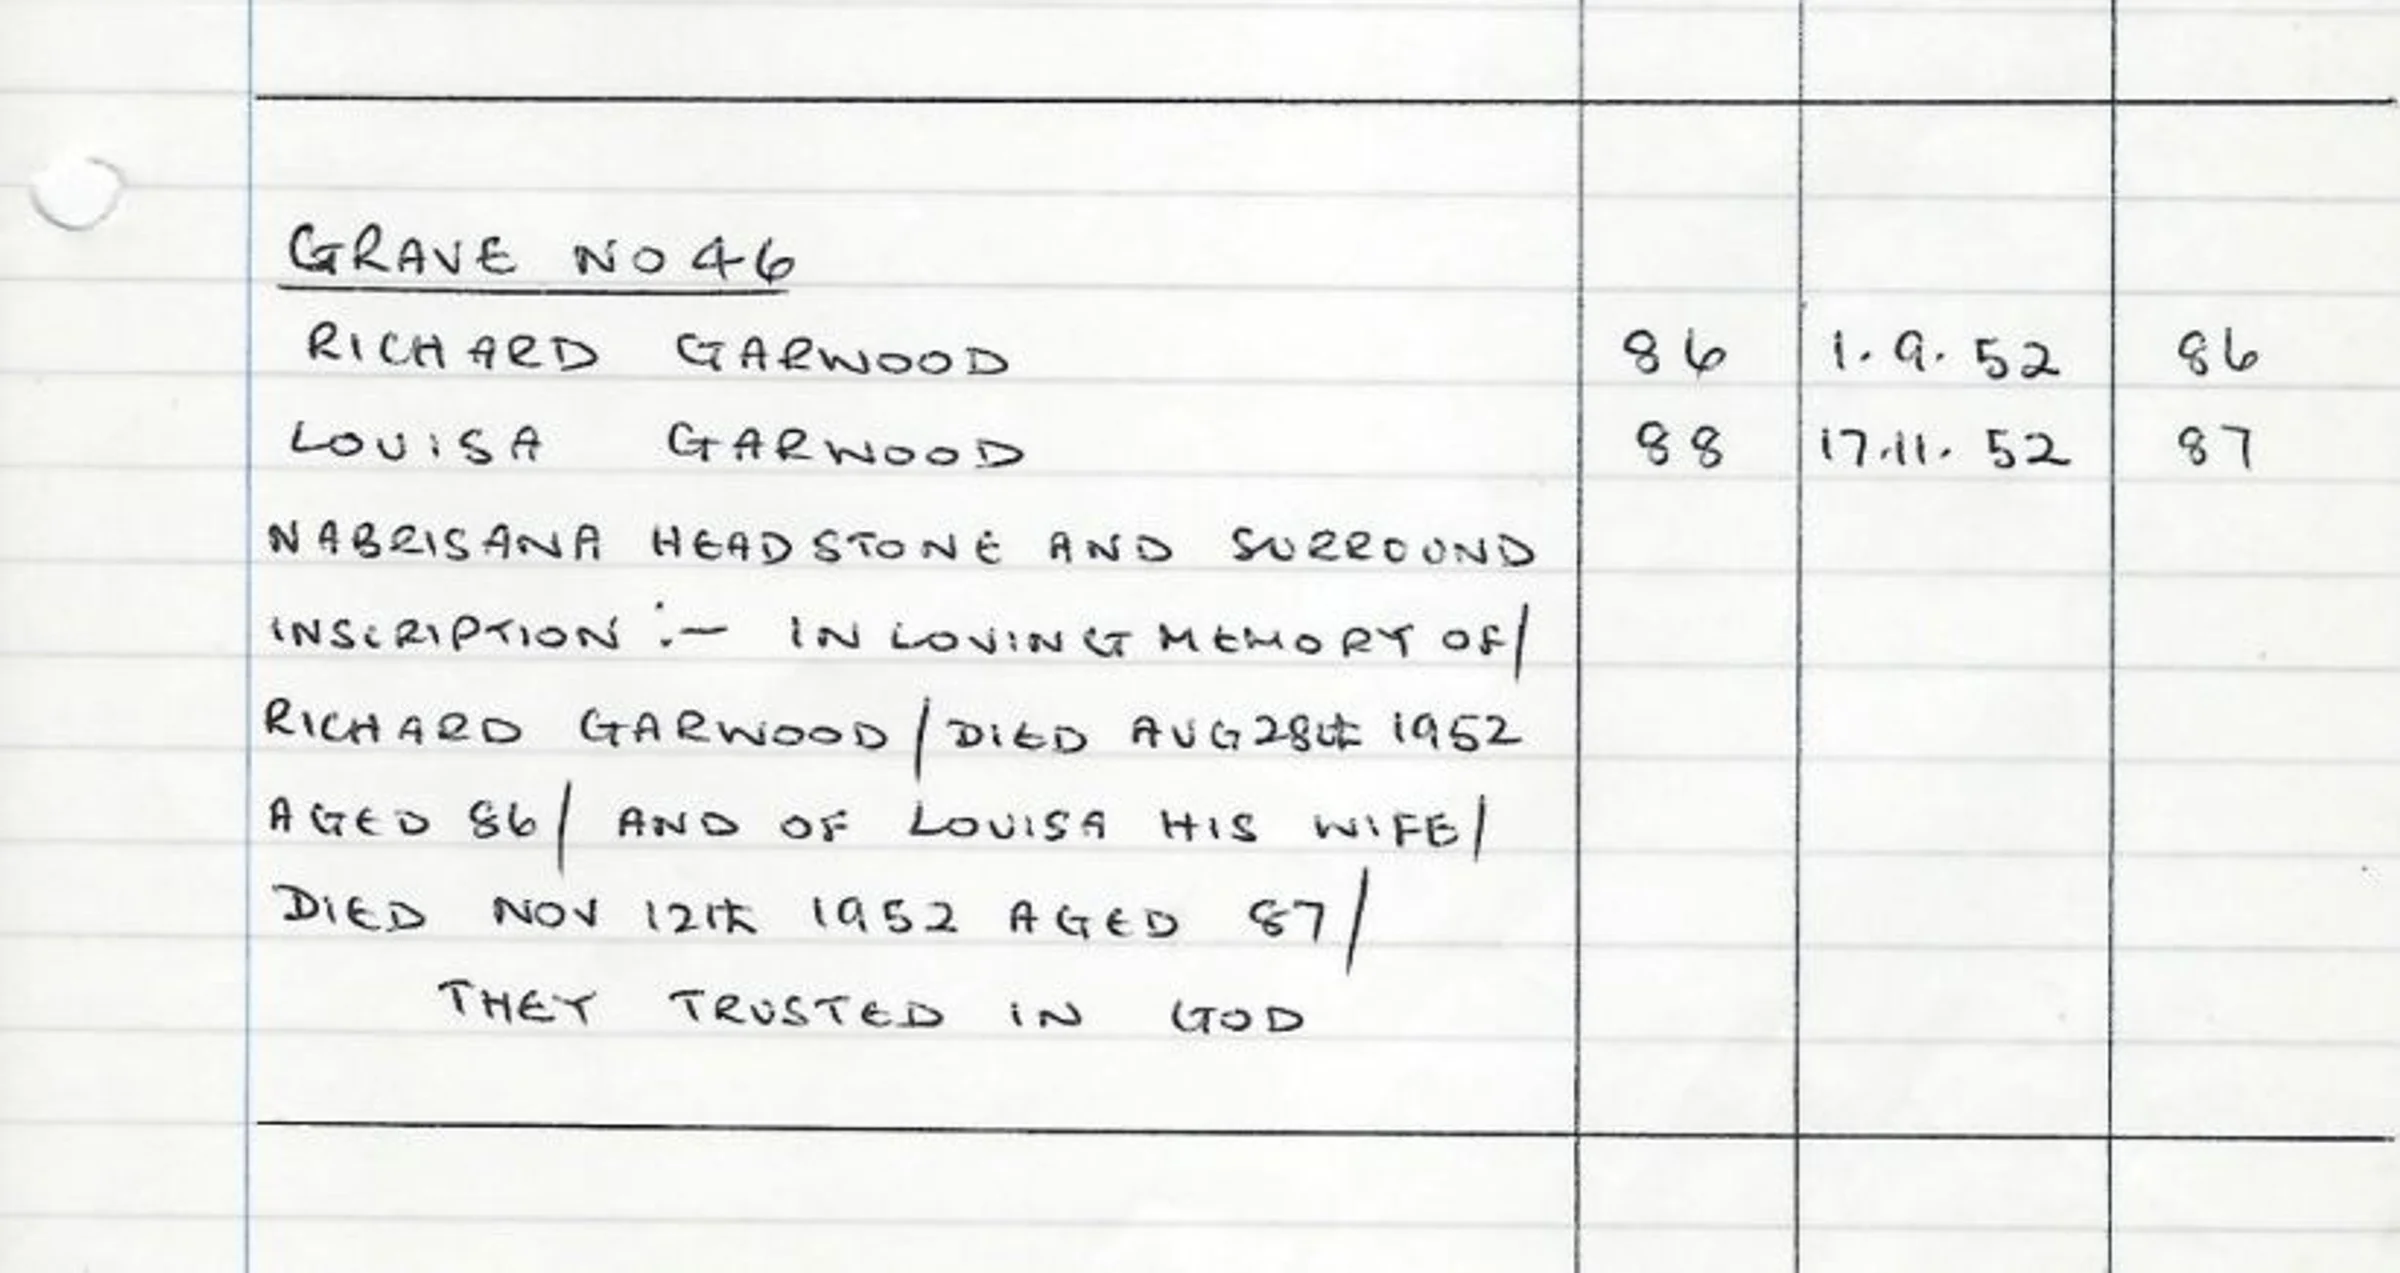 GRAVE NO 46
RICHARD GARWOOD 86 1.9.52 86
LOUISA GARWOOD 88 17.11.52 87
NABRISANA HEADSTONE AND SURROUND
INSCRIPTION :- IN LOVING MEMORY OF/
RICHARD GARWOOD / DIED AUG 28th 1952
AGED 86/ AND OF LOUISA HIS WIFE/
DIED NOV 12th 1952 AGED 87/
THEY TRUSTED IN GOD